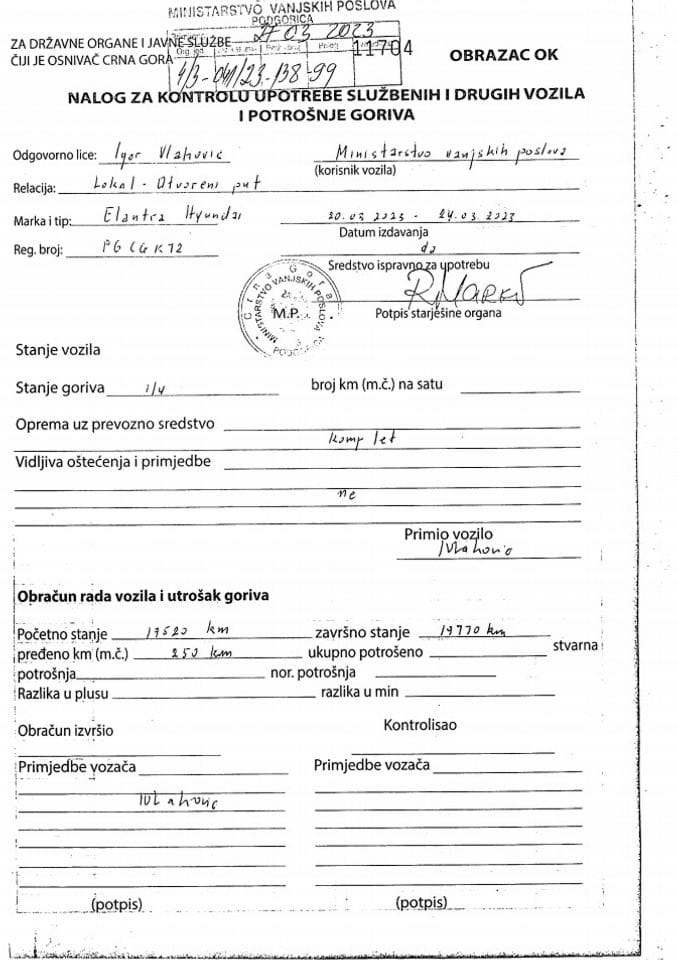 MINISTARSTVO VANJSKIH POSLOVA
PODGORICA
27 03 2023
ZA DRŽAVNE ORGANE I JAVNE SLUŽBE
ČIJI JE OSNIVAČ CRNA GORA
Org. jed. Prilog
11704
OBRAZAC OK
NALOG ZA KONTROLU UPOTREBE SLUŽBENIH I DRUGIH VOZILA
I POTROŠNJE GORIVA
Odgovorno lice: Igor Vlahović Ministarstvo vanjskih poslova
(korisnik vozila)
Relacija: Lokal - Otvoreni put
Marka i tip: Elantra Hyundai 20.03.2023 - 24.03.2023
Datum izdavanja
Reg. broj: PG CG K72 da
Sredstvo ispravno za upotrebu
Crna Gora
MINISTARSTVO VANJSKIH POSLOVA
M.P.
PODGORICA
Potpis starješine organa
Stanje vozila
Stanje goriva 1/4 broj km (m.č.) na satu
Oprema uz prevozno sredstvo
komplet
Vidljiva oštećenja i primjedbe
ne
Primio vozilo
IVlahović
Obračun rada vozila i utrošak goriva
Početno stanje 19520 km završno stanje 19770 km
pređeno km (m.č.) 250 km ukupno potrošeno stvarna
potrošnja nor. potrošnja
Razlika u plusu razlika u min
Obračun izvršio Kontrolisao
Primjedbe vozača Primjedbe vozača
IVlahović
(potpis) (potpis)